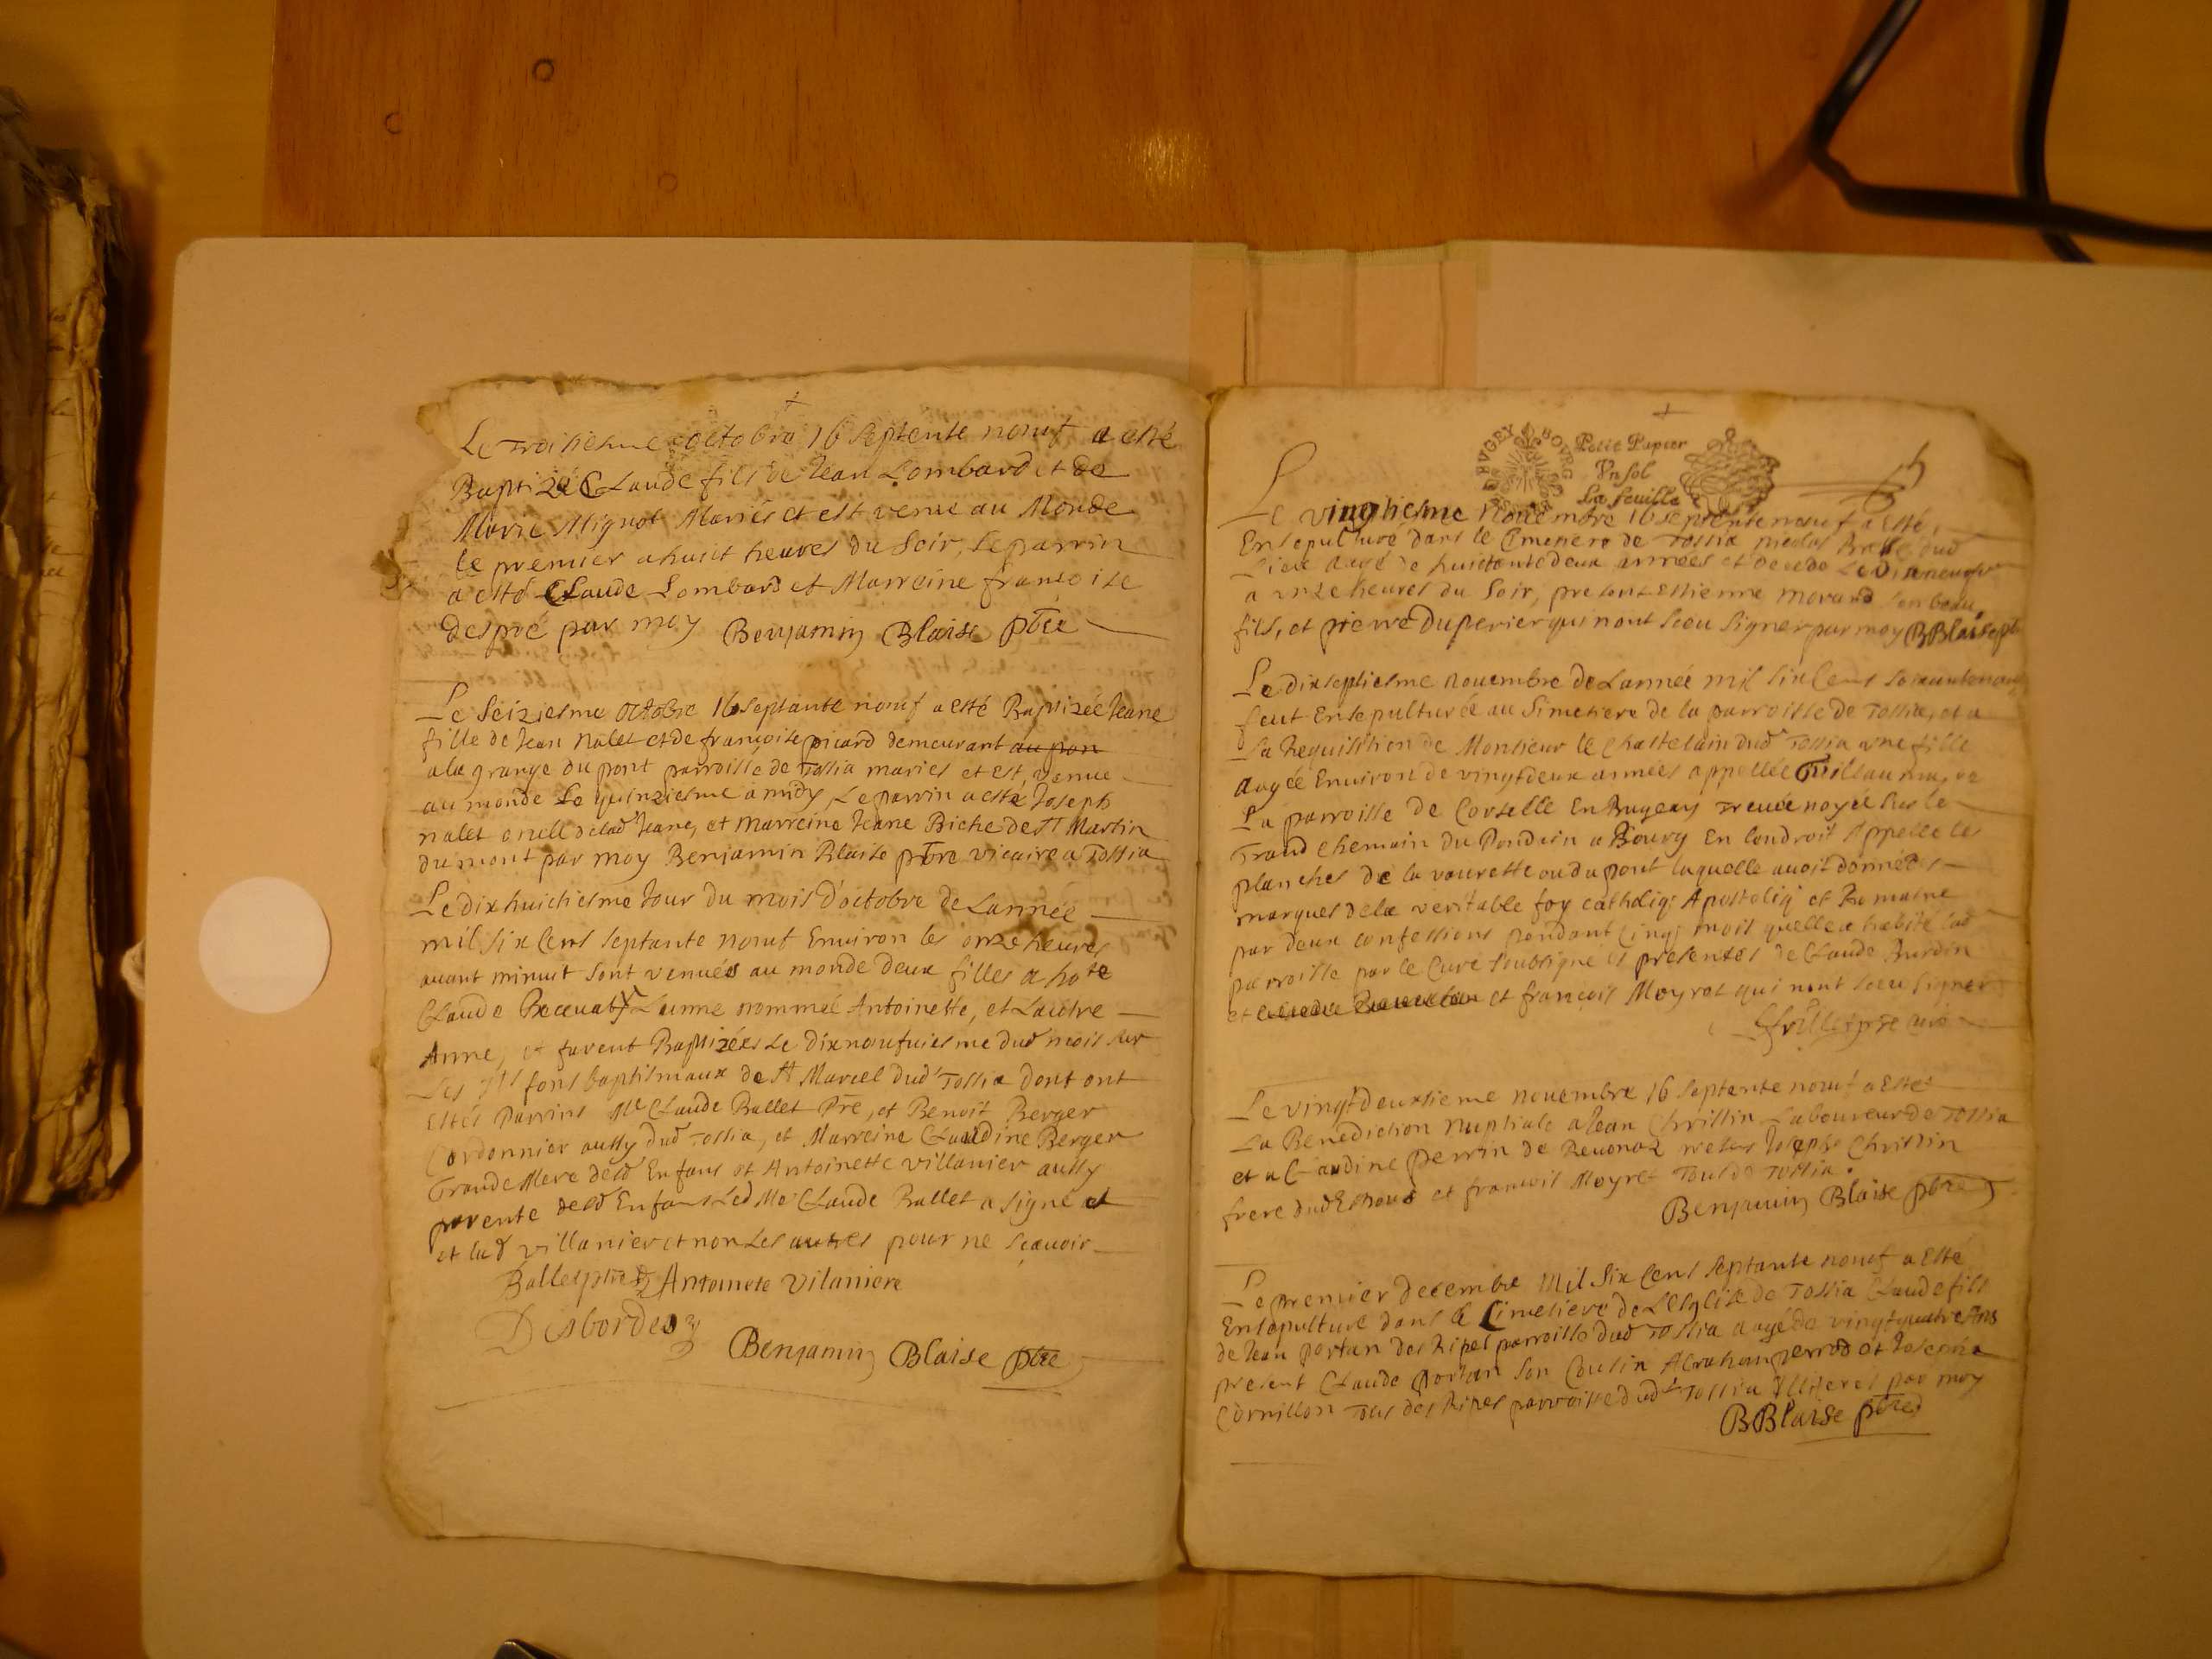 Le troisiesme octobre 16 septente neuf a esté
Baptizé Claude fils de Jean Lombard et de
Marie Mignot Mariés et est venu au Monde
le premier a huict heures du soir, le parrin
a esté Claude Lombard et Marreine françoise
despré par moy Benjamin Blaise pbre
Le seiziesme octobre 16 septante neuf a esté Baptizée Jeane
fille de Jean Nalet et de françoise picard demeurant au pon
a la grange du pont parroisse de Tossia mariés et est venue
au monde Le quinziesme a midy, Le parrin a esté Joseph
nalet oncle de lad Jeane, et Marreine Jeane Biche de St Martin
du mont par moy Benjamin Blaise pbre vicaire a Tossia
Le dixhuictiesme Jour du mois D'octobre de Lannée
mil six Cens septante neuf Environ les onze heures
auant minuit sont venués au monde deux filles a hote
Claude Lunne nommée Antoinette, et Lautre
Anne, et furent Baptizées Le dixneufuiesme dud mois sur
Les fons baptismaux de St Marcel dud Tossia dont ont
estés Parrins Me Claude Ballet Pre, et Benoit Berger
Cordonnier aussy dud Tossia, et Marreine Claudine Berger
Grande Mere desd Enfans et Antoinette villanier aussy
parente desd Enfans Led Me Claude Ballet a signé et
et lad villanier et non Les autres pour ne sçauoir
Ballet pbre Antoinete Vilaniere
Desbordes
Benjamin Blaise pbre
BUGEY BOURG
Petit Papier
Un sol
La feuille
Le vingtiesme Nouembre 16 septente neuf a esté
Ensepulturé dans le Cimetiere de Tossia dud
Lieu augé de huictante deux années et decedé Le dixneuf
a onze heures du soir, present Estienne morand son beau
fils, et pierre Duperier qui nont sceu signer par moy BBlaise pb
Le dixseptiesme nouembre de Lannée mil six Cens
feut Ensepulturée au Simetiere de la parroisse de Tossia, et a
La Requisition de Monsieur le Chastelain dud Tossia une fille
augée Enuiron de vingt deux années appellée Guillauma, de
La parroisse de Corselle En Bugeay Treuée noyée sur le
Grand chemain du Pondain a Bourg En lendroit Appelle les
planches de la vaurette ou du pont laquelle auoit donnée
marques de la veritable foy catholiq Apostoliq et Romaine
par deux confessions pendant cinq mois quelle a habité lad
parroisse par le Curé soubsigné presentes de Claude Burdin
et et françois Moyret qui nont sceu signer
pbre curé
Le vingtdeuxsieme nouembre 16 septente neuf a esté
La Benediction nuptiale a Jean Christin Laboureur de Tossia
et a Claudine Perrin de Reuonaz Joseph Christin
frere dud Espous et françois Moyret Tous de Tossia.
Benjamin Blaise pbre
Le premier decembre Mil six Cens septante neuf a esté
Ensepulturé dans le Cimetiere de Lesglise de Tossia Claude fils
de Jean portan des Ripes parroisse dud Tossia augé de vingtquatre Ans
present Claude portan son Cousin Abraham perrod et Joseph
Cornillon Tous des Ripes parroisse dud Tossia Illiterés par moy
BBlaise pbre